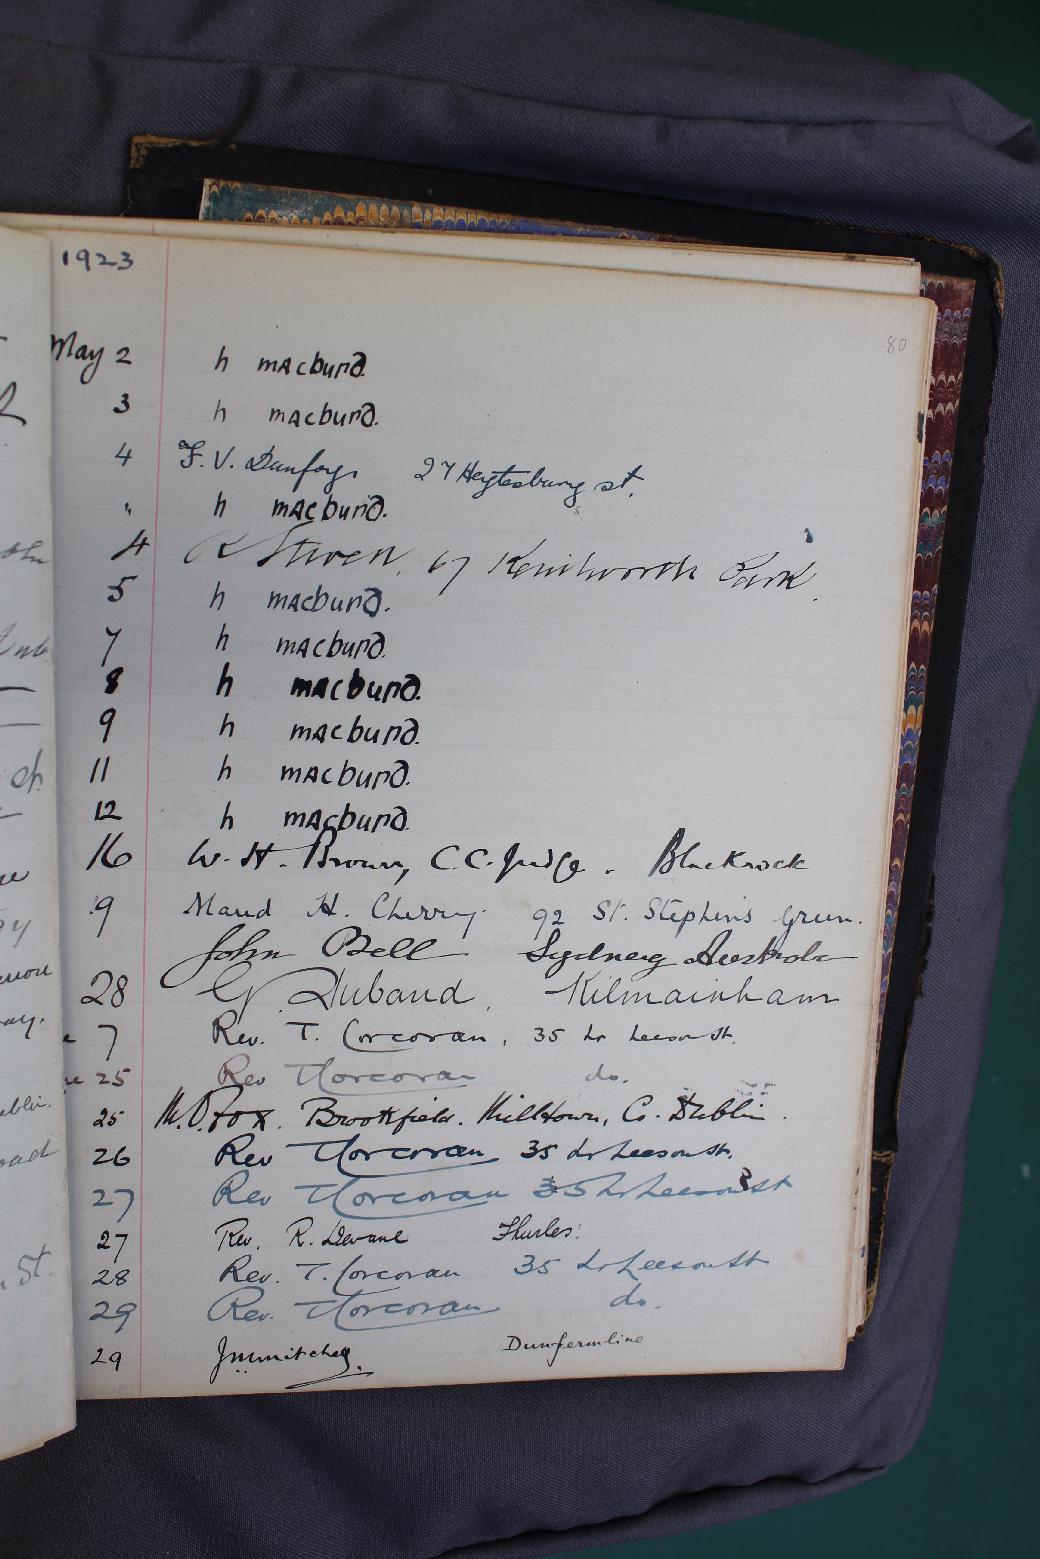 1923
80
May 2 h macbuid.
3 h macbuid.
4 F. V. 27 Heytesbury st.
" h macbuid.
4 R 67 Kenilworth Park.
5 h macbuid.
7 h macbuid.
8 h macbuid.
9 h macbuid.
11 h macbuid.
12 h macbuid.
16 W. H. Brown, C.C. Judge. Blackrock
9 Maud H. Cherry. 92 St. Stephens Green.
John Bell Sydney Australia
28 G. Duband, Kilmainham
7 Rev. T. Corcoran, 35 Lr Leeson St.
25 Rev T Corcoran do.
25 M. O. Fox. Brookfield. Milltown, Co. Dublin.
26 Rev T Corcoran 35 Lr Leeson St.
27 Rev T Corcoran 35 Lr Leeson St
27 Rev. R. Devane Thurles.
28 Rev. T. Corcoran 35 Lr Leeson St
29 Rev. T Corcoran do.
29 Dunfermline